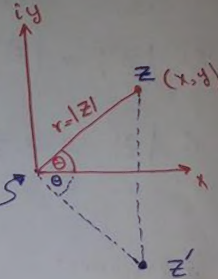 iy
z (x, y)
r=|z|
θ
x
θ
z'